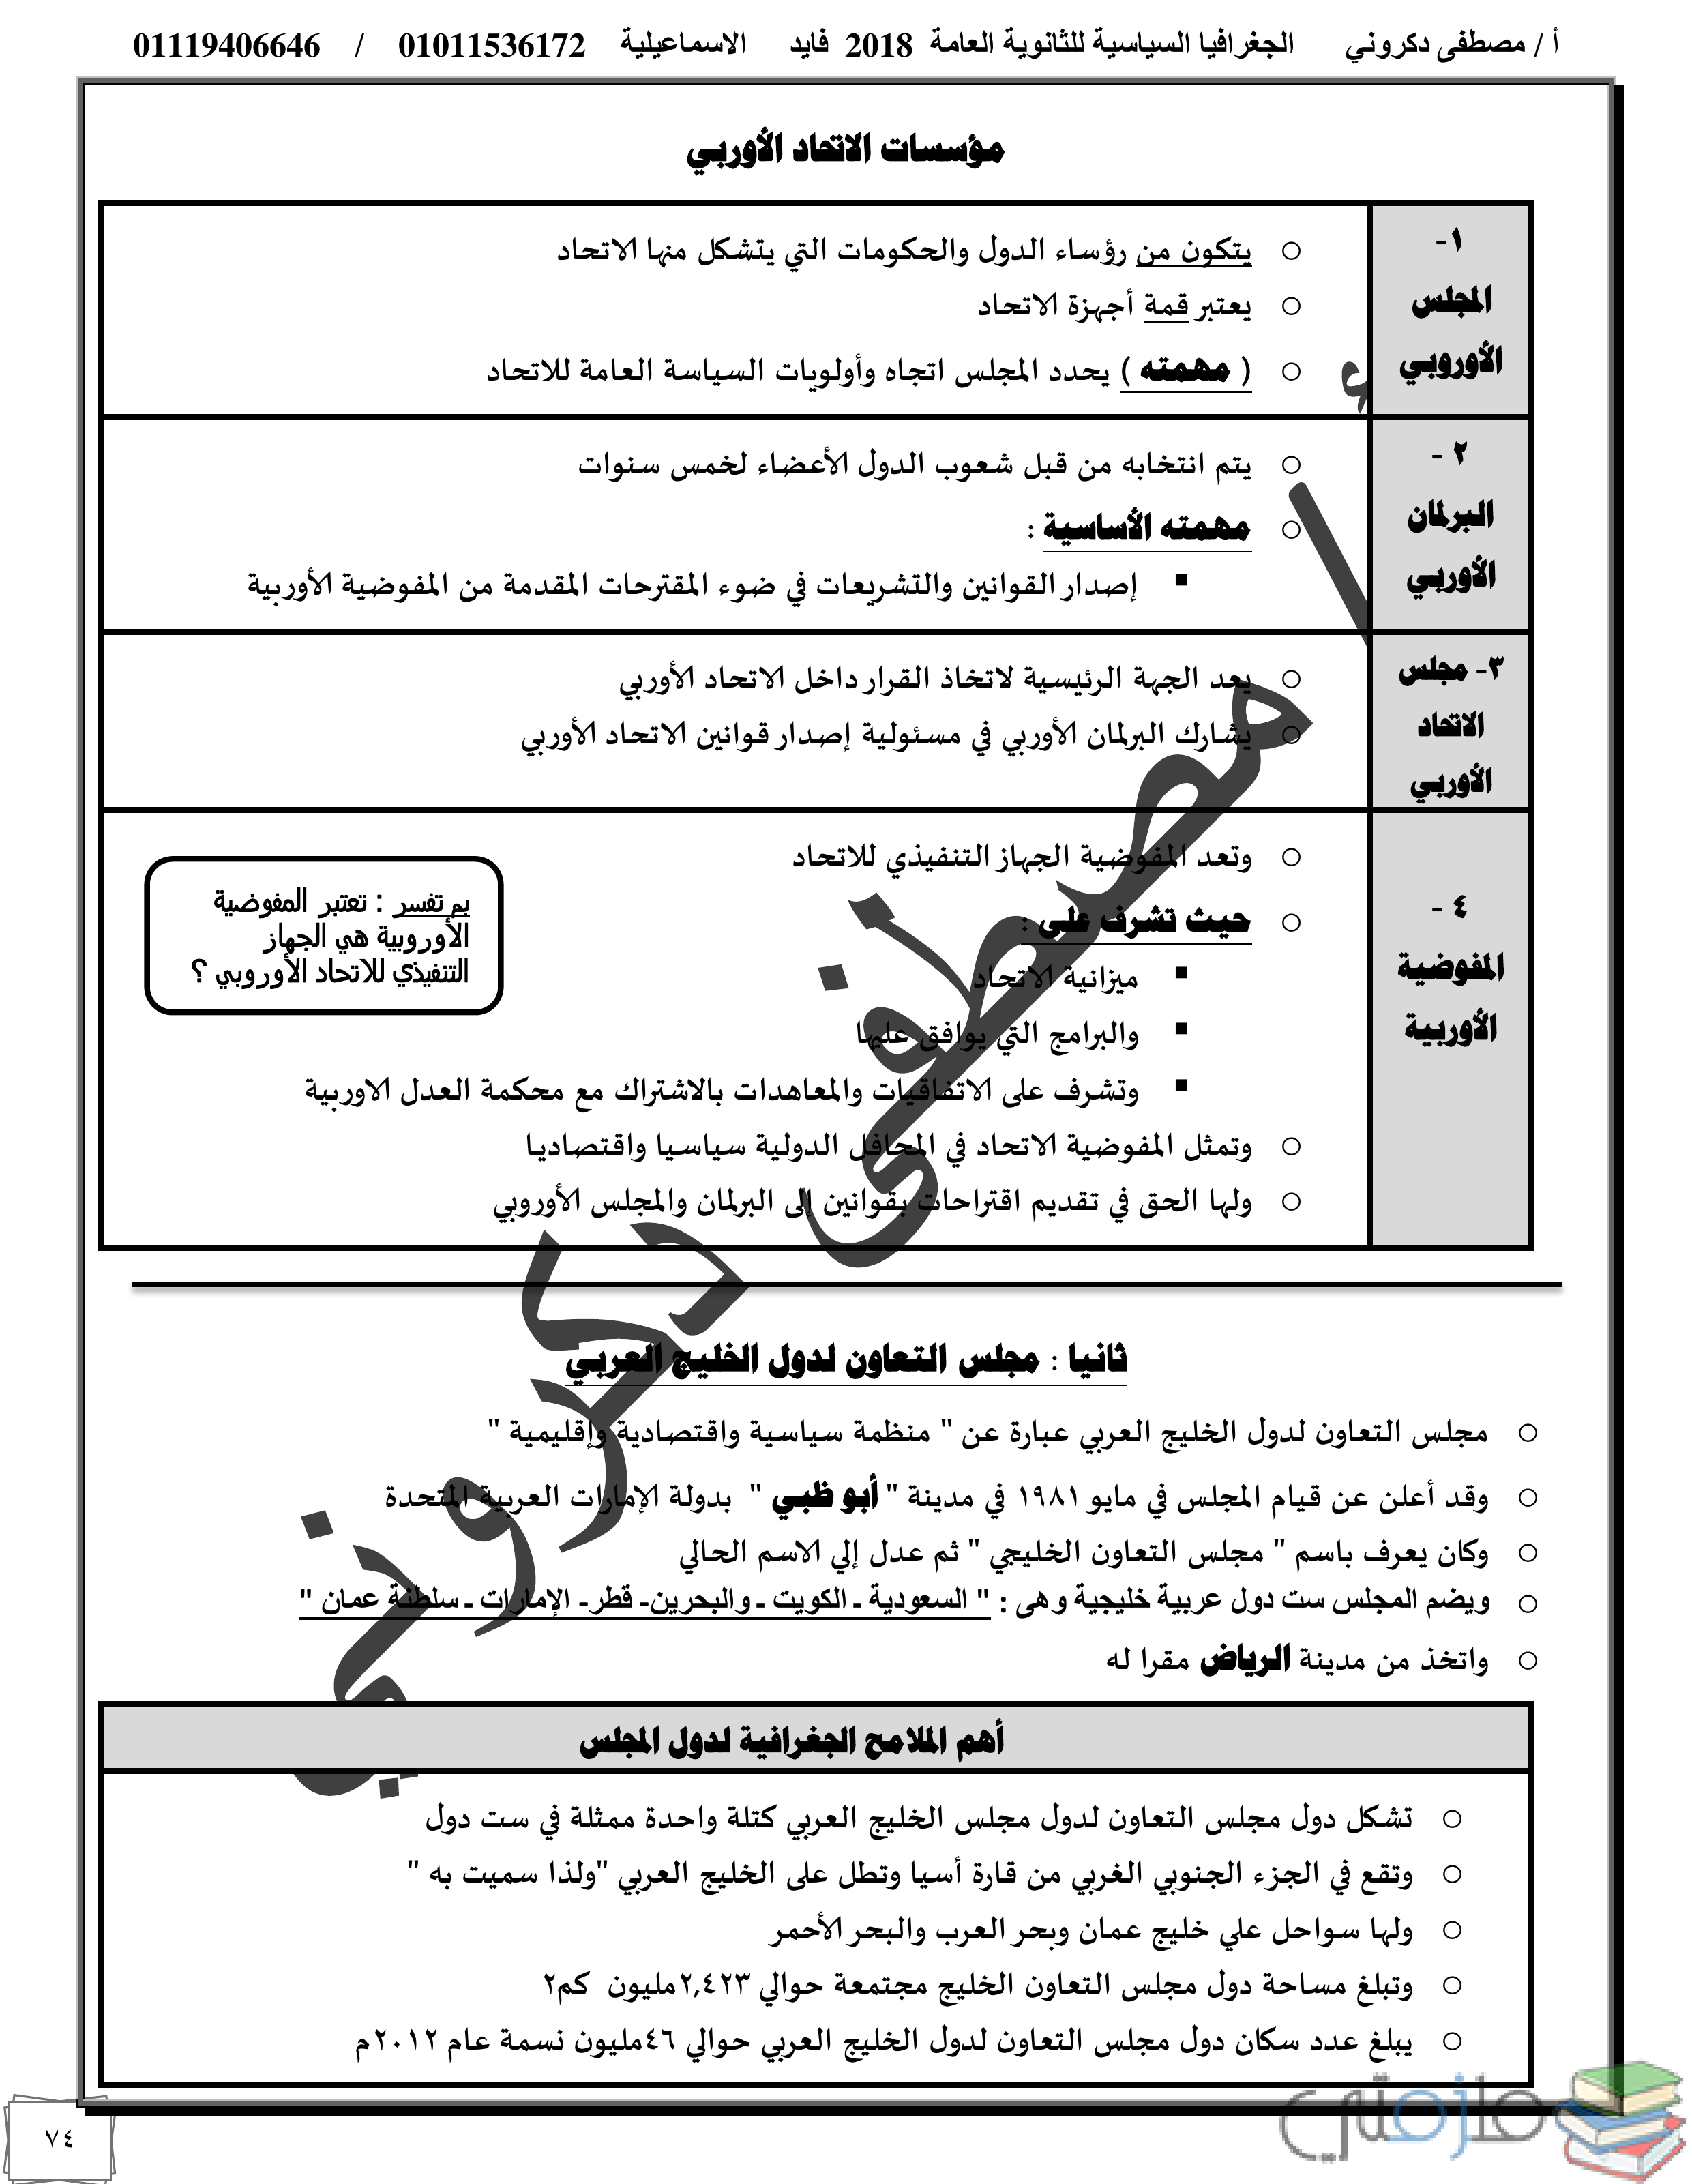 أ / مصطفى دكروني الجغرافيا السياسية للثانوية العامة 2018 فايد الاسماعيلية 01011536172 / 01119406646
مؤسسات الاتحاد الأوربي
١-
المجلس
الأوروبي
○ يتكون من رؤساء الدول والحكومات التي يتشكل منها الاتحاد
○ يعتبر قمة أجهزة الاتحاد
○ ( مهمته ) يحدد المجلس اتجاه وأولويات السياسة العامة للاتحاد
٢ -
البرلمان
الأوربي
○ يتم انتخابه من قبل شعوب الدول الأعضاء لخمس سنوات
○ مهمته الأساسية :
▪ إصدار القوانين والتشريعات في ضوء المقترحات المقدمة من المفوضية الأوربية
٣- مجلس
الاتحاد
الأوربي
○ يعد الجهة الرئيسية لاتخاذ القرار داخل الاتحاد الأوربي
○ يشارك البرلمان الأوربي في مسئولية إصدار قوانين الاتحاد الأوربي
٤ -
المفوضية
الأوربية
○ وتعد المفوضية الجهاز التنفيذي للاتحاد
○ حيث تشرف على :
▪ ميزانية الاتحاد
▪ والبرامج التي يوافق عليها
▪ وتشرف على الاتفاقيات والمعاهدات بالاشتراك مع محكمة العدل الاوربية
○ وتمثل المفوضية الاتحاد في المحافل الدولية سياسيا واقتصاديا
○ ولها الحق في تقديم اقتراحات بقوانين إلى البرلمان والمجلس الأوروبي
بم تفسر : تعتبر المفوضية
الأوروبية هي الجهاز
التنفيذي للاتحاد الأوروبي ؟
ثانيا : مجلس التعاون لدول الخليج العربي
○ مجلس التعاون لدول الخليج العربي عبارة عن " منظمة سياسية واقتصادية وإقليمية "
○ وقد أعلن عن قيام المجلس في مايو ١٩٨١ في مدينة " أبو ظبي " بدولة الإمارات العربية المتحدة
○ وكان يعرف باسم " مجلس التعاون الخليجي " ثم عدل إلي الاسم الحالي
○ ويضم المجلس ست دول عربية خليجية وهى : " السعودية ـ الكويت ـ والبحرين- قطر- الإمارات ـ سلطنة عمان "
○ واتخذ من مدينة الرياض مقرا له
أهم الملامح الجغرافية لدول المجلس
○ تشكل دول مجلس التعاون لدول مجلس الخليج العربي كتلة واحدة ممثلة في ست دول
○ وتقع في الجزء الجنوبي الغربي من قارة أسيا وتطل على الخليج العربي "ولذا سميت به "
○ ولها سواحل علي خليج عمان وبحر العرب والبحر الأحمر
○ وتبلغ مساحة دول مجلس التعاون الخليج مجتمعة حوالي ٢,٤٢٣مليون كم٢
○ يبلغ عدد سكان دول مجلس التعاون لدول الخليج العربي حوالي ٤٦مليون نسمة عام ٢٠١٢م
أ / مصطفى دكروني
ملازمتي
٧٤